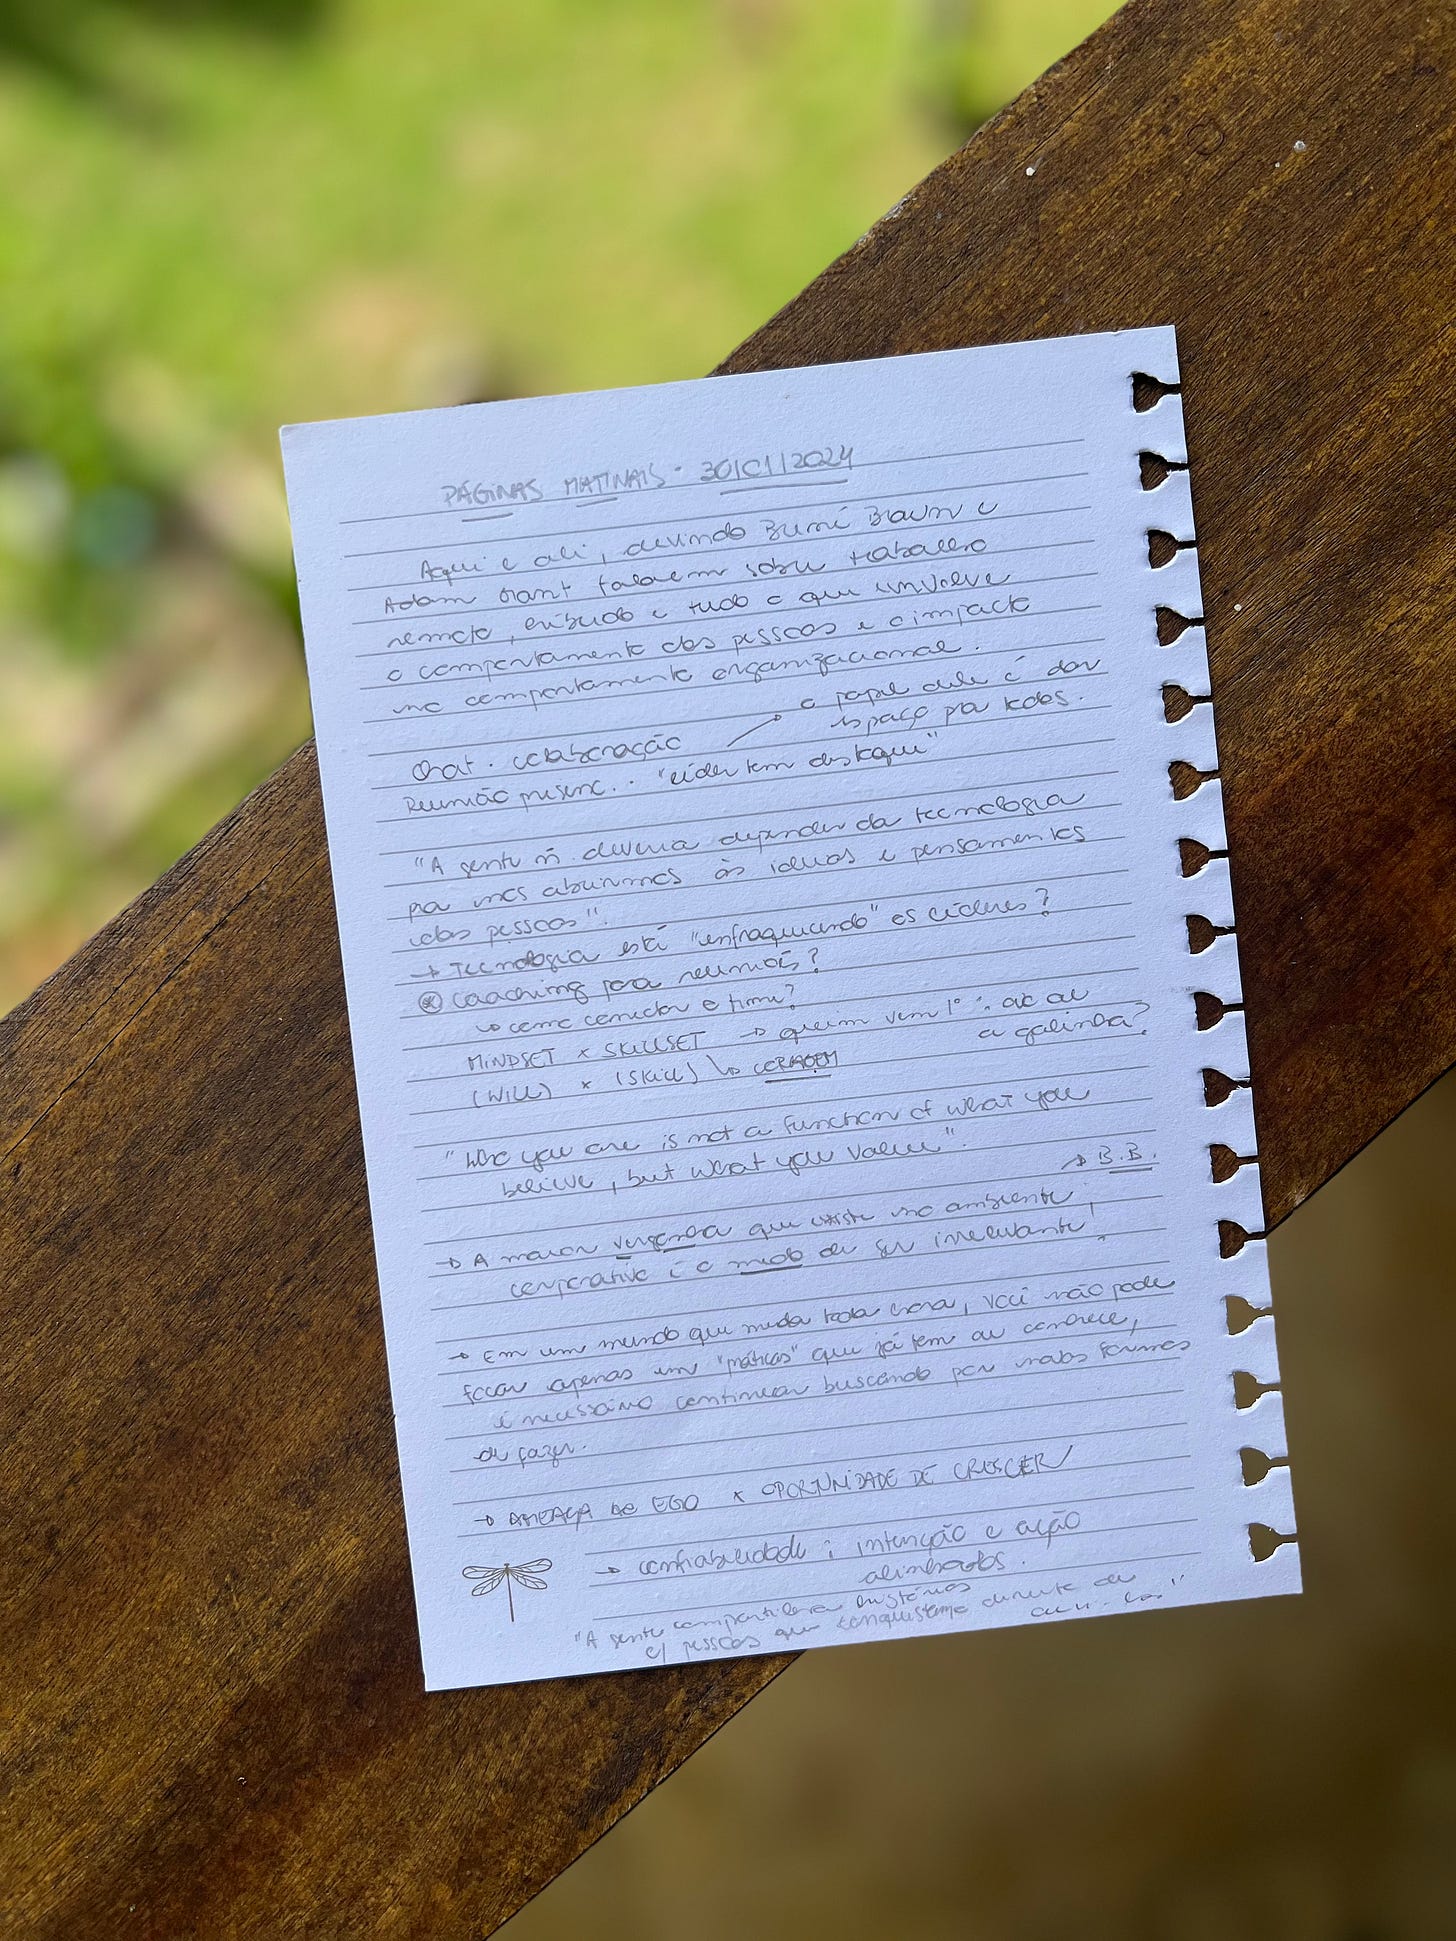 PÁGINAS MATINAIS · 30/01/2024
Aqui e ali, ouvindo Brené Brown e
Adam Grant falarem sobre trabalho
remoto, híbrido e tudo o que envolve
o comportamento das pessoas e o impacto
no comportamento organizacional.
→ o papel dele é dar
espaço pra todos.
Chat · colaboração
Reunião presenc. · "líder tem destaque"
"A gente ñ deveria depender da tecnologia
pra nos abrirmos às ideias e pensamentos
das pessoas".
→ Tecnologia está "enfraquecendo" os líderes?
* Coaching para reuniões?
↳ como conectar o time?
MINDSET x SKILLSET → quem vem 1º: ovo ou
a galinha?
(WILL) x (SKILL) ↳ CORAGEM
"Who you are is not a function of what you
believe, but what you value".
→ B.B.
→ A maior vergonha que existe no ambiente
corporativo é o medo de ser irrelevante!
→ Em um mundo que muda toda hora, você não pode
focar apenas em "práticas" que já tem ou conhece,
é necessário continuar buscando por novas formas
de fazer.
→ AMEAÇA DE EGO x OPORTUNIDADE DE CRESCER
→ confiabilidade: intenção e ação
alinhados.
"A gente compartilha histórias
c/ pessoas que